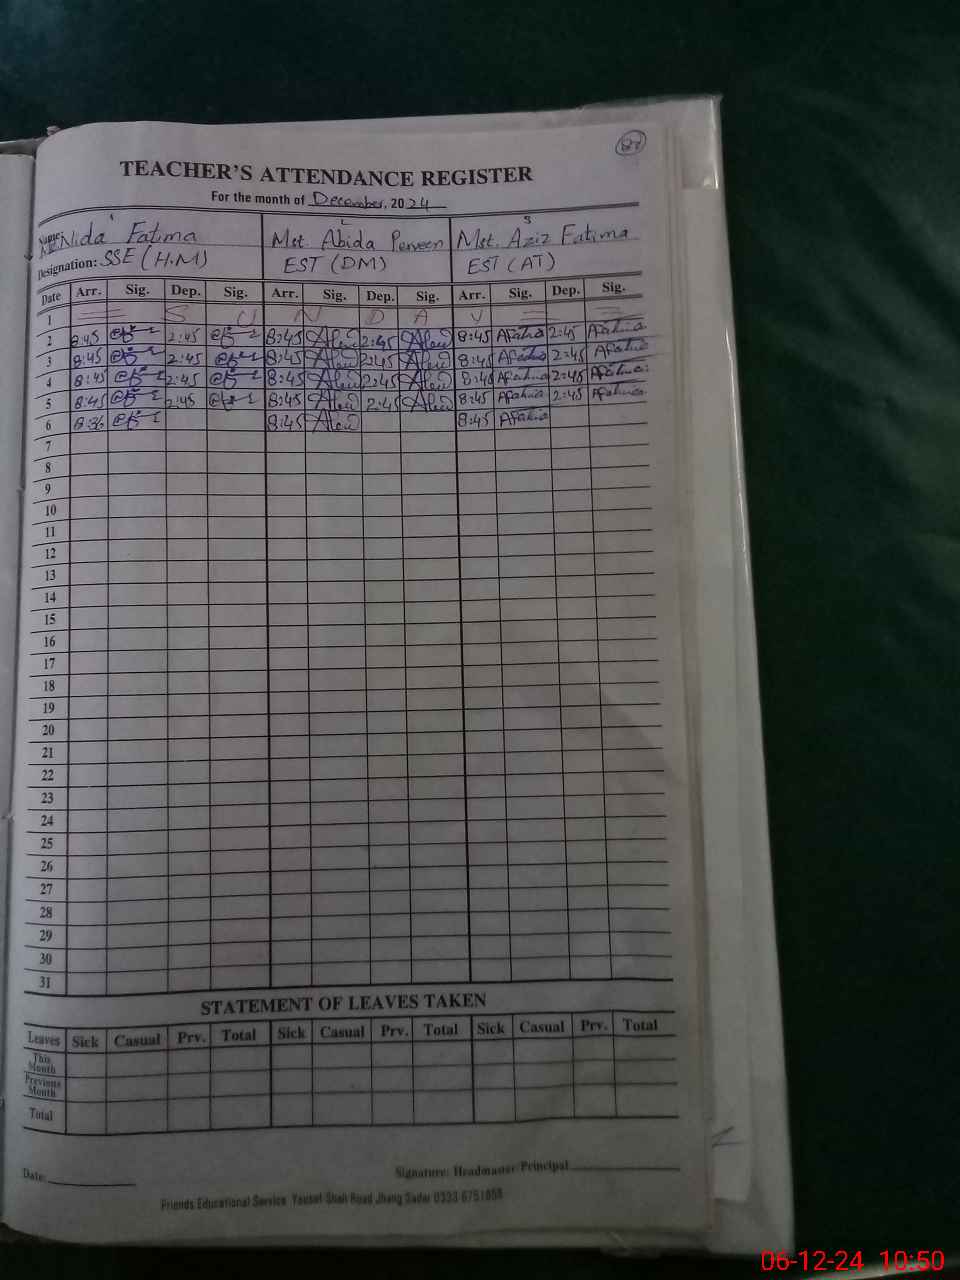 82
TEACHER'S ATTENDANCE REGISTER
For the month of December, 2024
1 2 3
Name: Nida Fatima Mst. Abida Perveen Mst. Aziz Fatima
Designation: SSE (H.M) EST (DM) EST (AT)
Date Arr. Sig. Dep. Sig. Arr. Sig. Dep. Sig. Arr. Sig. Dep. Sig.
1 S U N D A Y
2 8:45 2:45 8:45 2:45 8:45 AFatima 2:45 AFatima
3 8:45 2:45 8:45 2:45 8:45 AFatima 2:45 AFatima
4 8:45 2:45 8:45 2:45 8:45 AFatima 2:45 AFatima
5 8:45 2:45 8:45 2:45 8:45 AFatima 2:45 AFatima
6 8:36 8:45 8:45 AFatima
7
8
9
10
11
12
13
14
15
16
17
18
19
20
21
22
23
24
25
26
27
28
29
30
31
STATEMENT OF LEAVES TAKEN
Leaves Sick Casual Prv. Total Sick Casual Prv. Total Sick Casual Prv. Total
This Month
Previous Month
Total
Date: Signature: Headmaster/Principal
Friends Educational Service Yousaf Shah Road Jhang Sadar 0333-6751858
06-12-24 10:50